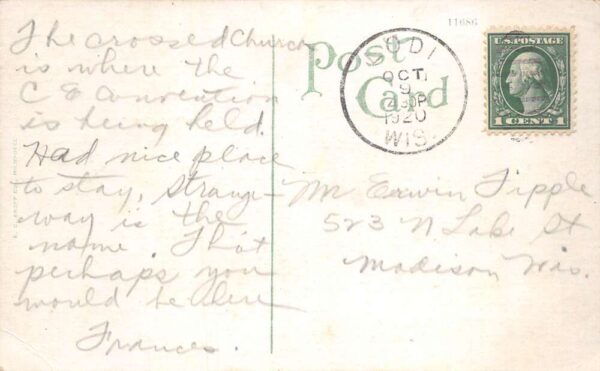 11686
Post
Card
LODI
OCT.
9
4 30P
1920
WIS.
U.S. POSTAGE
1 CENT 1
The crossed Church
is where the
C E Convention
is being held.
Had nice place
to stay, Strange-
way is the
name. Thot
perhaps you
would be here
Frances.
Mr Erwin Tipple
523 N Lake St
Madison Wis.